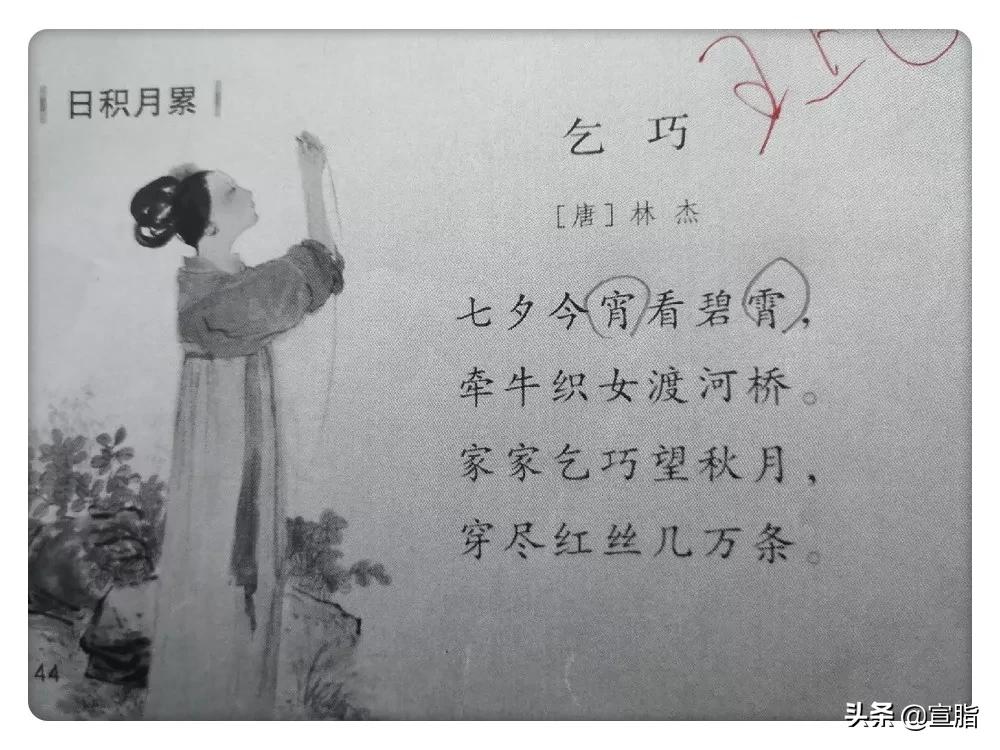 日积月累
乞巧
[唐]林杰
七夕今宵看碧霄，
牵牛织女渡河桥。
家家乞巧望秋月，
穿尽红丝几万条。
44
头条 @宣脂